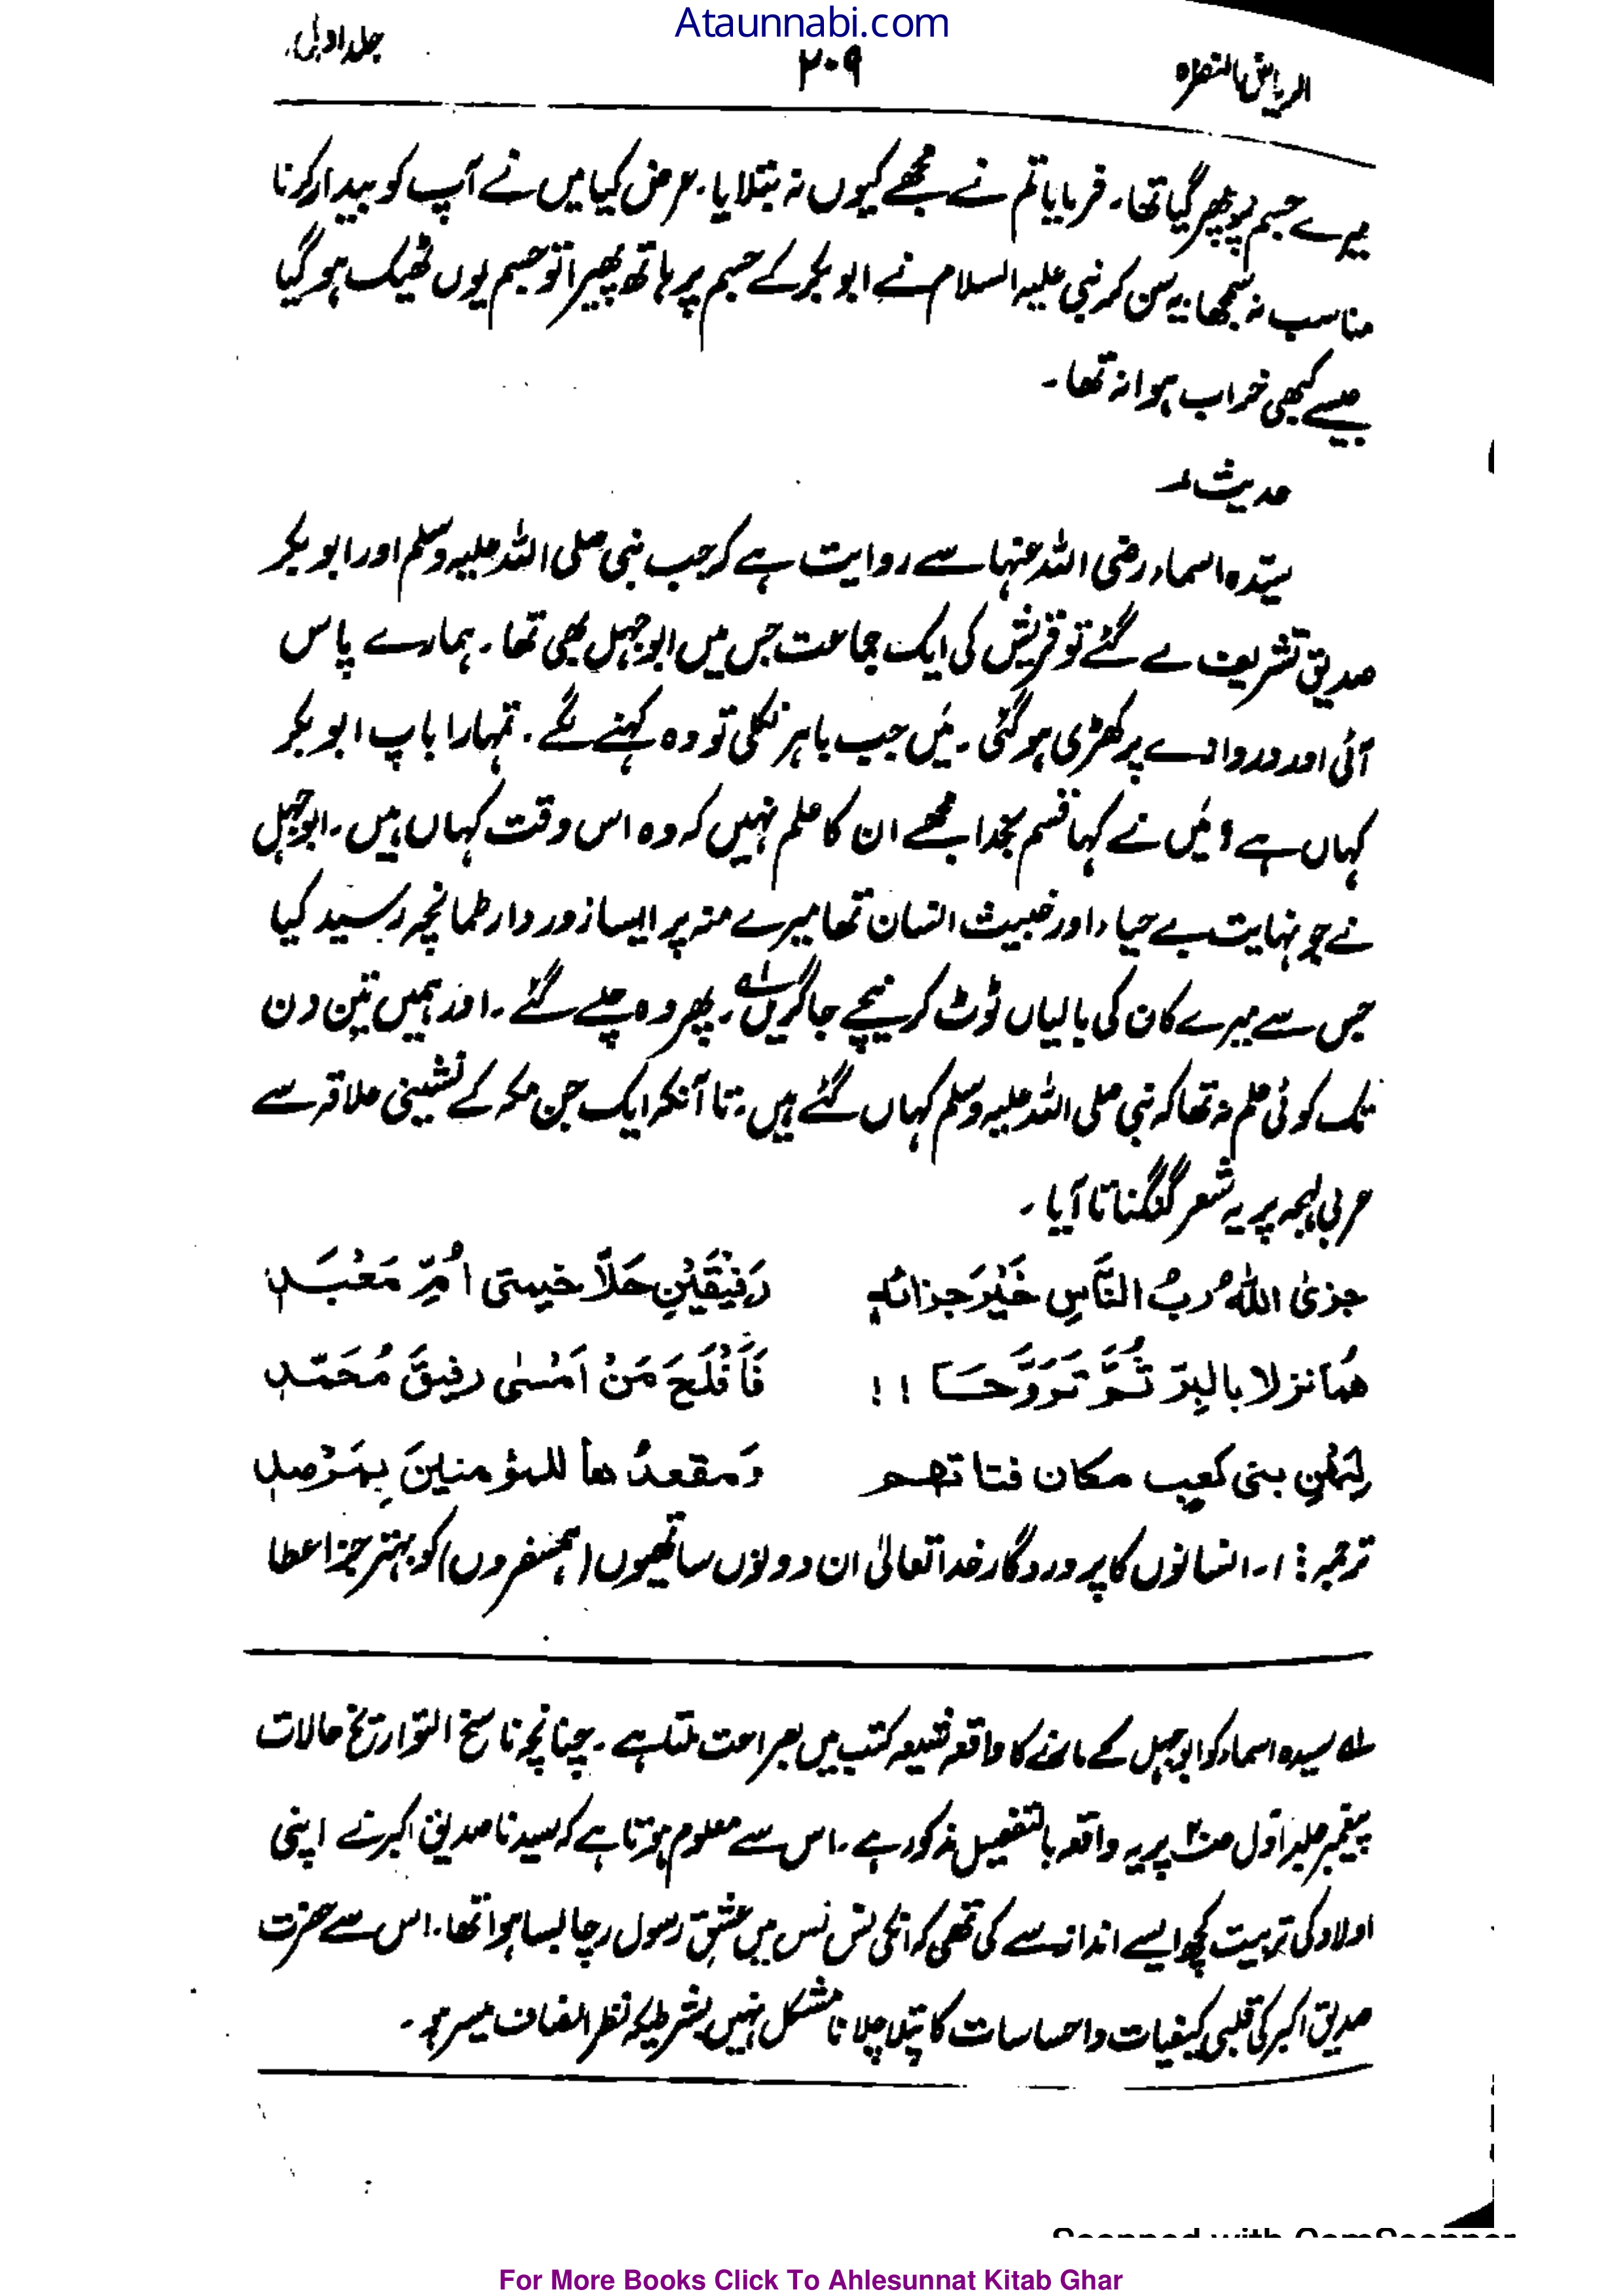 Ataunnabi.com
الریاض النضرہ ۲۰۹ جلد اول
میرے جسم پر پھر گیا تھا۔ فرمایا تم نے مجھے کیوں نہ بتلایا۔ عرض کیا میں نے آپ کو بیدار کرنا
مناسب نہ سمجھا۔ یہ سن کر نبی علیہ السلام نے ابوبکر کے جسم پر ہاتھ پھیرا تو جسم یوں ٹھیک ہو گیا
جیسے کبھی خراب ہوا نہ تھا۔
حدیث
سیّدہ اسماء رضی اللہ عنہا سے روایت ہے کہ جب نبی صلی اللہ علیہ وسلم اور ابو بکر
صدیق تشریف لے گئے تو قریش کی ایک جماعت جس میں ابوجہل بھی تھا۔ ہمارے پاس
آئی اور دروازے پر کھڑی ہو گئی۔ مَیں جب باہر نکلی تو وہ کہنے لگے۔ تمہارا باپ ابو بکر
کہاں ہے؟ مَیں نے کہا قسم بخدا مجھے ان کا علم نہیں کہ وہ اس وقت کہاں ہیں۔ ابوجہل
نے جو نہایت بے حیاء اور خبیث انسان تھا میرے منہ پر ایسا زور دار طمانچہ رسید کیا
جس سے میرے کان کی بالیاں ٹوٹ کر نیچے جا گریں لہ۔ پھر وہ چلے گئے۔ اور ہمیں تین دن
تک کوئی علم نہ تھا کہ نبی صلی اللہ علیہ وسلم کہاں گئے ہیں۔ تا آنکہ ایک جن مکہ کے نشینی علاقہ سے
عربی لہجہ پر یہ شعر گنگناتا آیا۔
جزیٰ اللّٰهُ ربُّ النَّاسِ خَيْرَ جزائهٖ رَفِيْقَيْنِ حَلَّا خيمتی اُمِّ مَعْبَدٖ
هُمَا نزلا بالبِرّ ثُمَّ تَرَوَّحَا !! فَاَفْلَحَ مَنْ اَمْسٰی رفيقَ مُحَمّدٖ
لِيَهْنِ بنی كعبٍ مكان فتاتهم وَمقعدُها للمؤمنينَ بِمَرْصدٖ
ترجمہ: ۱۔ انسانوں کا پروردگار خدا تعالیٰ ان دونوں ساتھیوں (ہمسفروں) کو بہتر جزا عطا
لہ سیدہ اسماء کو ابوجہل کے مارنے کا واقعہ شیعہ کتب میں بصراحت ملتا ہے۔ چنانچہ ناسخ التواریخ حالات
پیغمبر جلد اوّل پر یہ واقعہ بالتفصیل مذکور ہے۔ اس سے معلوم ہوتا ہے کہ سیدنا صدیق اکبر نے اپنی
اولاد کی تربیت کچھ ایسے انداز سے کی تھی کہ انکی نس نس میں عشقِ رسول رچا بسا ہوا تھا۔ اس سے حضرت
صدیق اکبر کی قلبی کیفیات و احساسات کا پتہ چلانا مشکل نہیں بشرطیکہ نظر انصاف میسر ہو۔
For More Books Click To Ahlesunnat Kitab Ghar